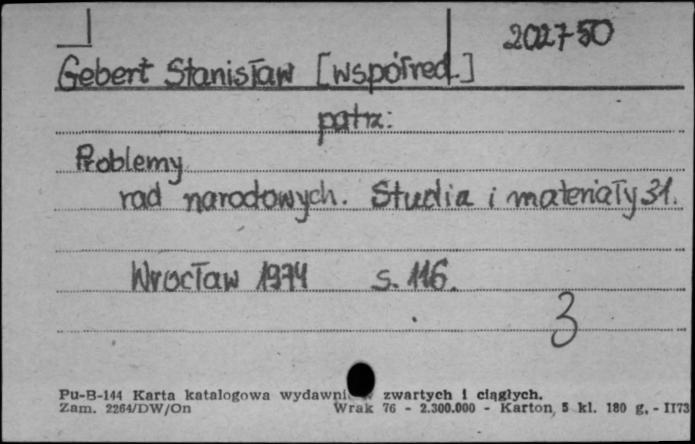 202750
Gebert Stanisław [współred.]
patrz:
Problemy
rad narodowych. Studia i materiały 31.
Wrocław 1974 s. 116.
3
Pu-B-144 Karta katalogowa zwartych i ciągłych.
Zam. 2264/DW/On Wrak 76 - 2.300.000 - Karton 5 kl. 180 g. - II73